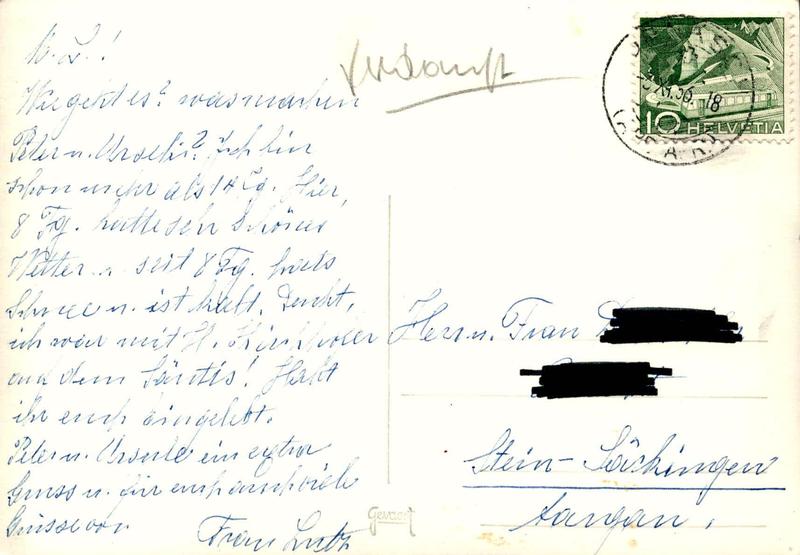 M. L.!
Wie geht es? was machen
Peter u. Urseli? Ich bin
schon mehr als 14 Tg. Hier,
8 Tg. hatte es schönes
Wetter u. seit 8 Tg. hats
Schnee u. ist kalt. Denkt,
ich war mit H.
auf dem Säntis! Habt
ihr euch eingelebt.
Peter u. Ursule ein extra
Gruss u. für euch auch viele
Grüsse von
Frau Lutz
verdankt
10 HELVETIA
56. 18
Herr u. Frau
Stein-Säckingen
Aargau.
Gevaert